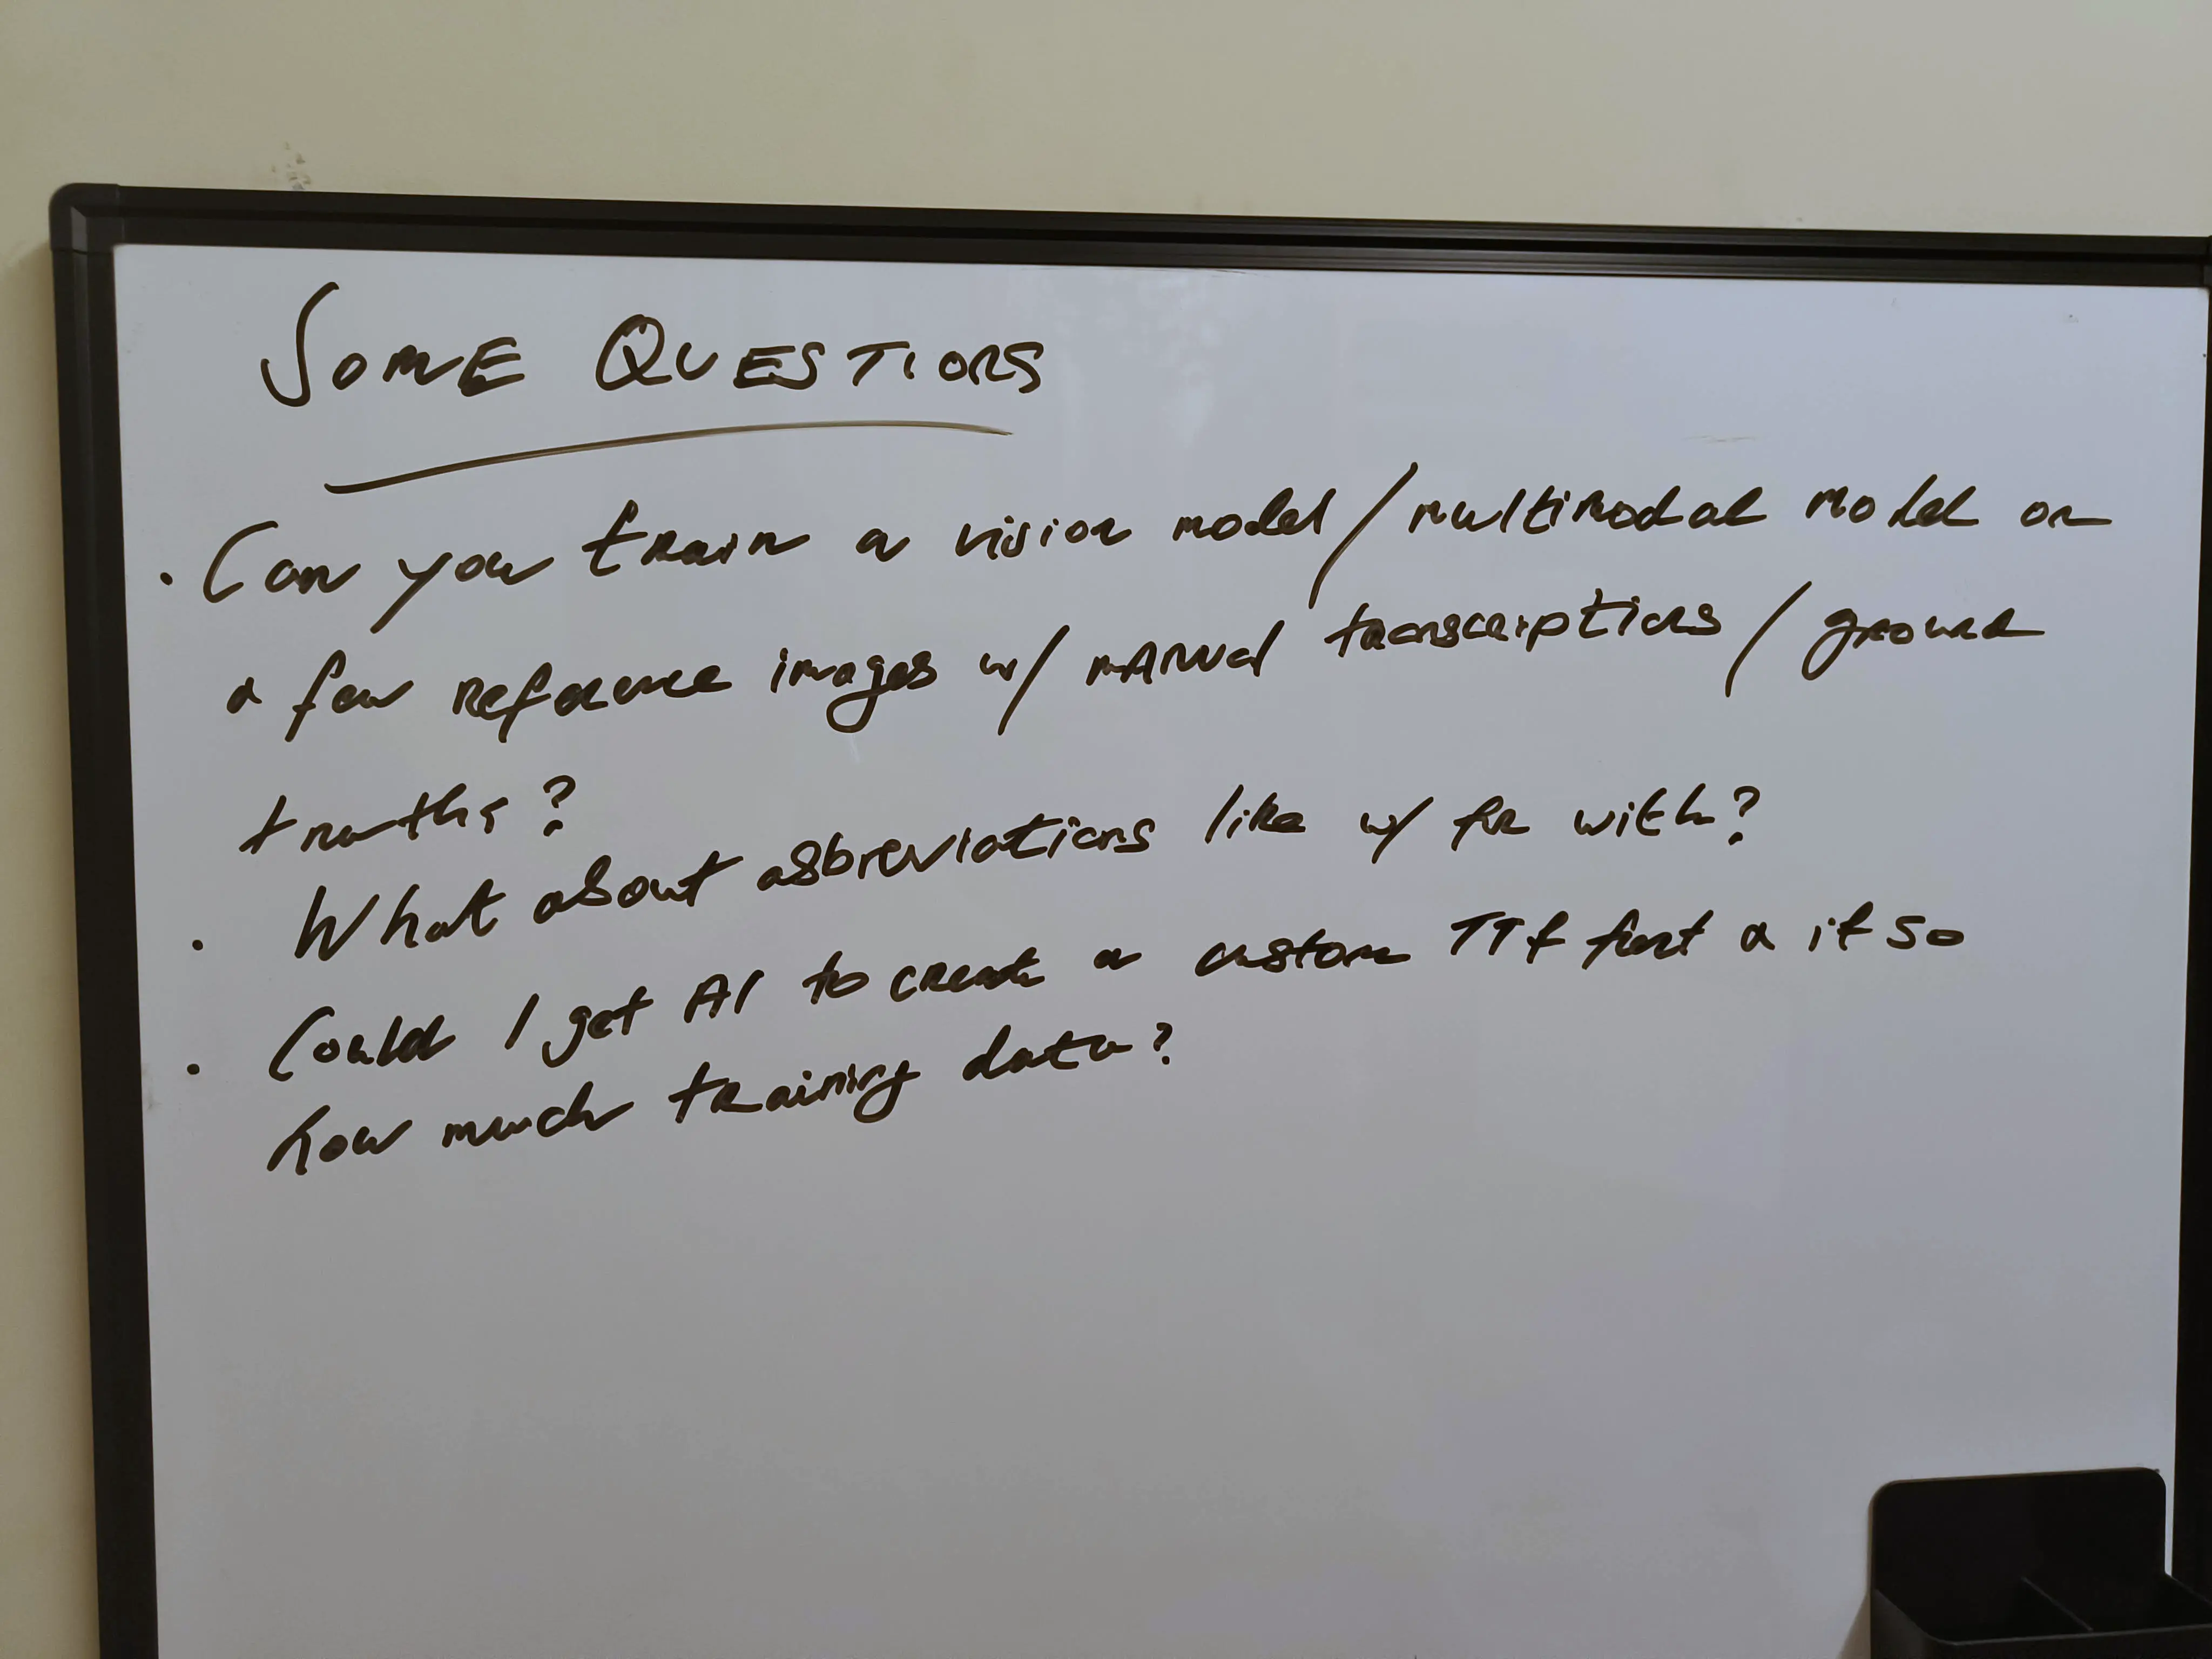 SOME QUESTIONS
· Can you train a vision model/multimodal model on
a few reference images w/ manual transcriptions/ground
truths?
· What about abbreviations like w/ for with?
· Could I get AI to create a custom TTF font & if so
how much training data?